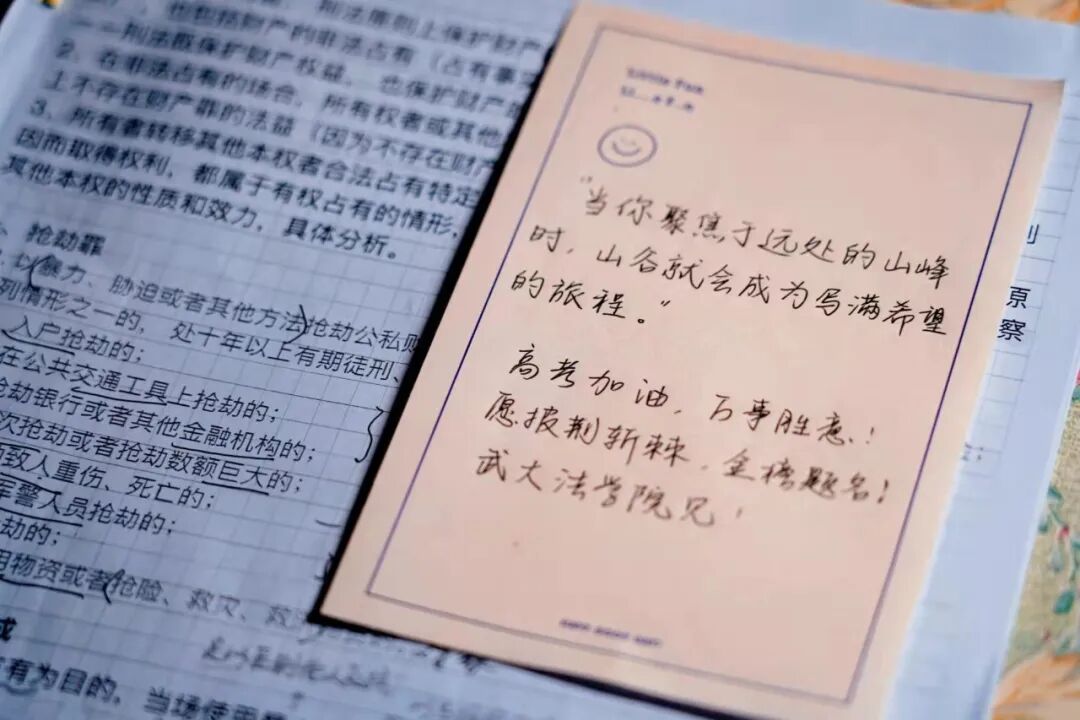 也包括财产的非法占有（占有事
一刑法既保护财产权益，也保护财产的
2、在非法占有的场合，所有权者或其他
上不存在财产罪的法益（因为不存在财产
3、所有者转移其他本权者合法占有特定
因而取得权利，都属于有权占有的情形，
其他本权的性质和效力，具体分析。
抢劫罪
以暴力、胁迫或者其他方法抢劫公私财
列情形之一的，处十年以上有期徒刑、
入户抢劫的；
在公共交通工具上抢劫的；
抢劫银行或者其他金融机构的；
次抢劫或者抢劫数额巨大的；
致人重伤、死亡的；
军警人员抢劫的；
劫的；
用物资或者抢险、救灾、救
成
占有为目的，当场使用
"当你聚焦于远处的山峰
时，山谷就会成为写满希望
的旅程。"
高考加油，万事胜意！
愿披荆斩棘，金榜题名！
武大法学院见！
原
察